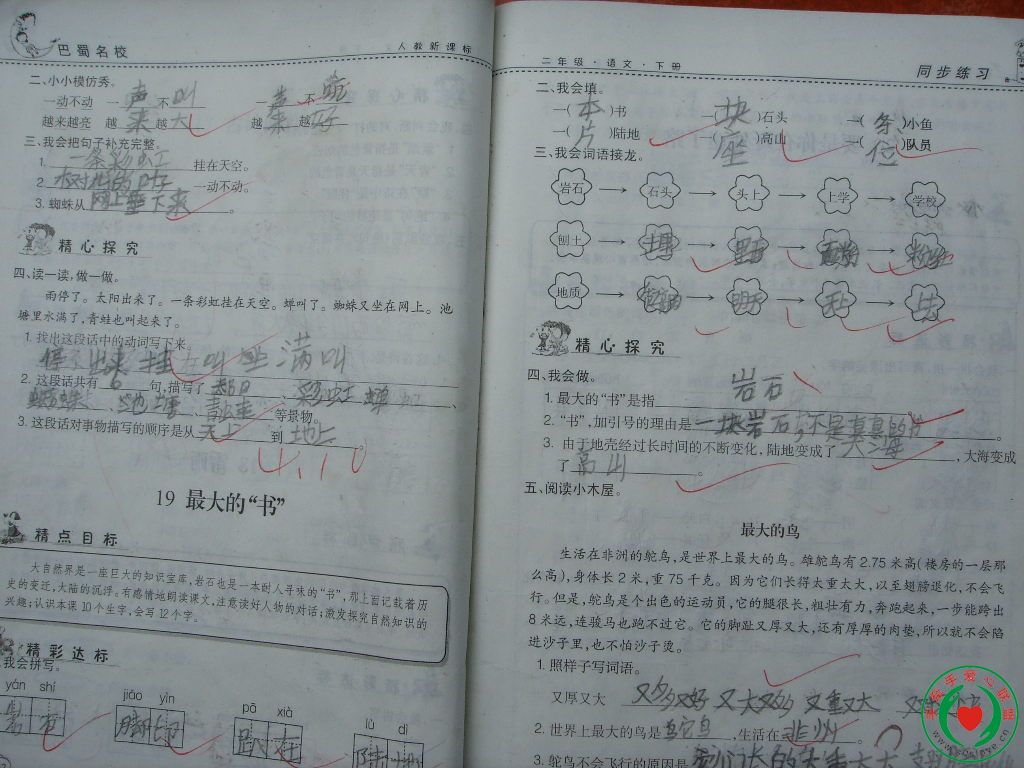 巴蜀名校
人教新课标
二、小小模仿秀。
一动不动 一声不叫 一声不
越来越亮 越来越大 越来越好
三、我会把句子补充完整。
1. 一条彩虹 挂在天空。
2. 树 的叶子 一动不动。
3. 蜘蛛从 网上垂下来。
精心探究
四、读一读,做一做。
雨停了。太阳出来了。一条彩虹挂在天空。蝉叫了。蜘蛛又坐在网上。池
塘里水满了,青蛙也叫起来了。
1. 找出这段话中的动词写下来。
停 出来 挂 叫 坐 满 叫
2. 这段话共有 6 句,描写了 、彩虹 蝉
蜘蛛、池塘、青蛙 等景物。
3. 这段话对事物描写的顺序是从 天上 到 地上。
4.10
19 最大的“书”
精点目标
大自然界是一座巨大的知识宝库,岩石也是一本耐人寻味的“书”,那上面记载着历
史的变迁,大陆的沉浮。有感情地朗读课文,注意读好人物的对话;激发探究自然知识的
兴趣;认识本课10个生字,会写12个字。
精彩达标
我会拼写。
yán shí
jiǎo yìn
pā xià
lù dì
二年级·语文·下册
同步练习
二、我会填。
一(本)书 一(块)石头 一(条)小鱼
一(片)陆地 一(座)高山 一(位)队员
三、我会词语接龙。
岩石 → 石头 → 头上 → 上学 → 学校
刨土 → 土里 → 里面 →
地质 → → → 天上 → 上去
精心探究
四、我会做。
1. 最大的“书”是指 岩石
2. “书”,加引号的理由是 一块岩石,不是真真的书。
3. 由于地壳经过长时间的不断变化,陆地变成了 大海,大海变成
了 高山。
五、阅读小木屋。
最大的鸟
生活在非洲的鸵鸟,是世界上最大的鸟。雄鸵鸟有2.75米高(楼房的一层那
么高),身体长2米,重75千克。因为它们长得太重太大,以至翅膀退化,不会飞
行。但是,鸵鸟是个出色的运动员,它的腿很长,粗壮有力,奔跑起来,一步能跨出
8米远,连骏马也跑不过它。它的脚趾又厚又大,还有厚厚的肉垫,所以就不会陷
进沙子里,也不怕沙子烫。
1. 照样子写词语。
又厚又大 又多又好 又大又多 又重又大
2. 世界上最大的鸟是 鸵鸟,生活在 非州。
3. 鸵鸟不会飞行的原因是 它们长的太重太大